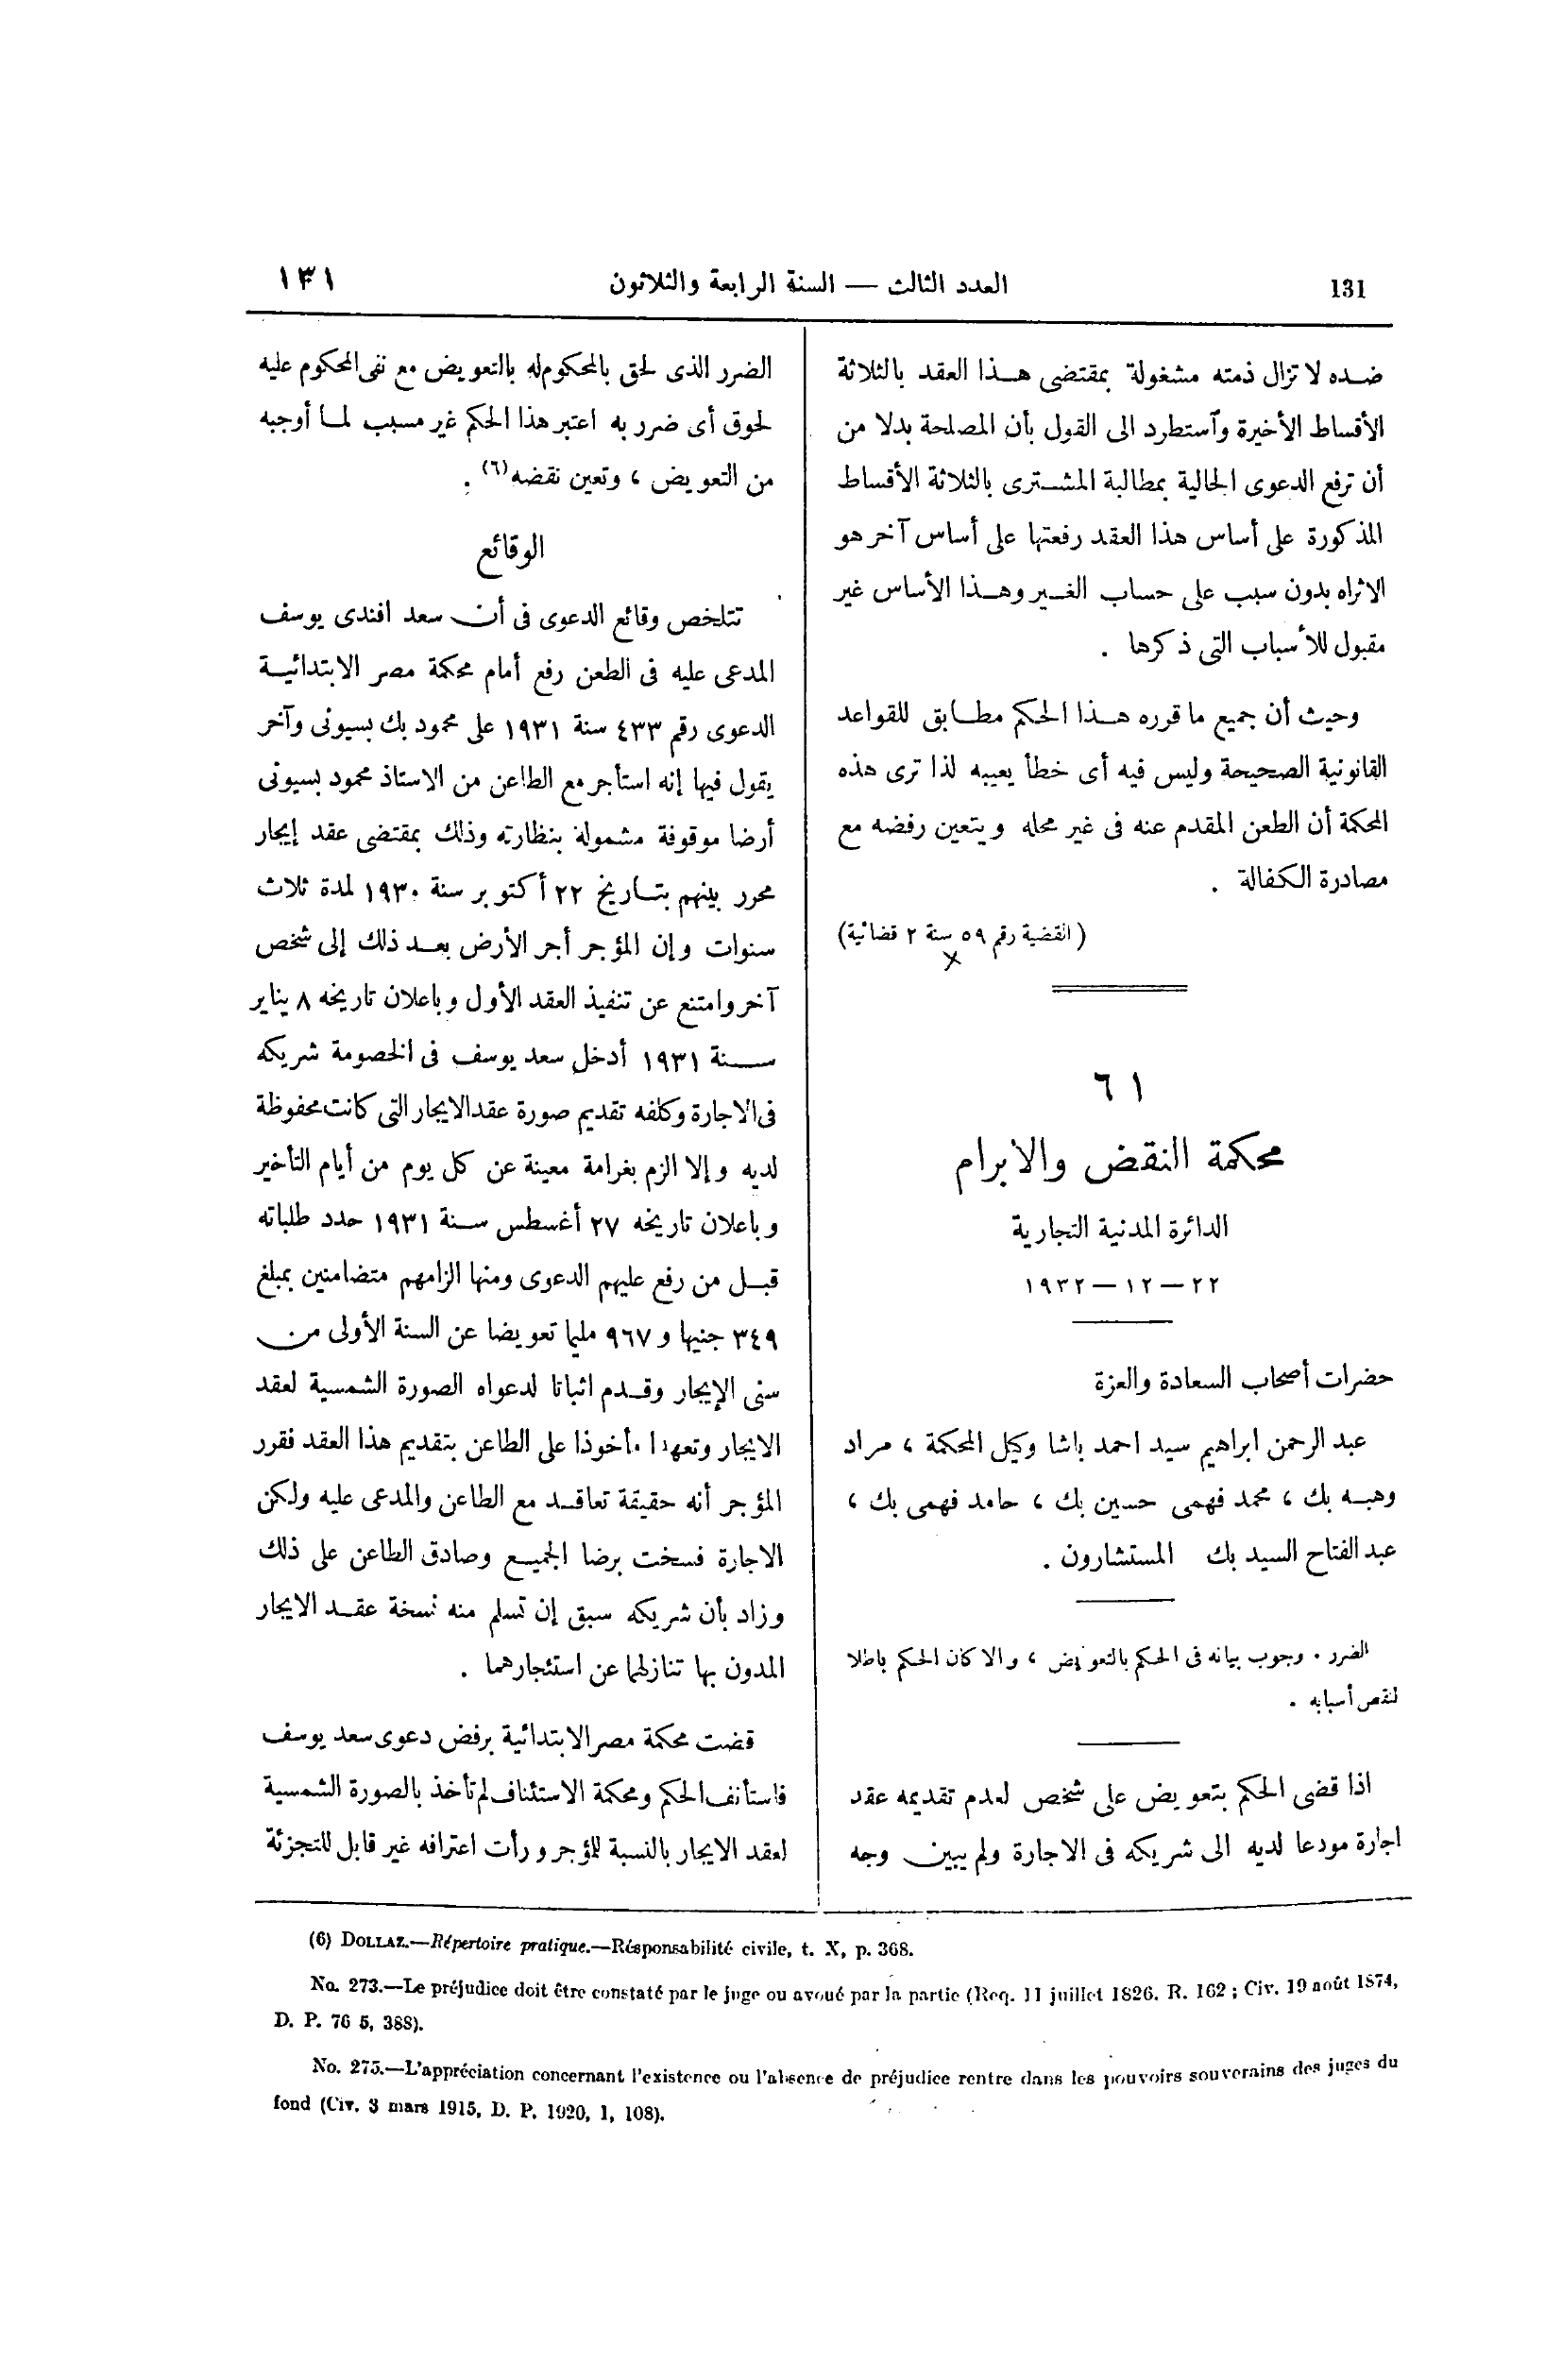 131
العدد الثالث — السنة الرابعة والثلاثون
١٣١
ضده لا تزال ذمته مشغولة بمقتضى هذا العقد بالثلاثة
الأقساط الأخيرة وآستطرد الى القول بأن المصلحة بدلا من
أن ترفع الدعوى الحالية بمطالبة المشترى بالثلاثة الأقساط
المذكورة على أساس هذا العقد رفعتها على أساس آخر هو
الاثراء بدون سبب على حساب الغير وهذا الأساس غير
مقبول للأسباب التى ذكرها .
وحيث أن جميع ما قرره هذا الحكم مطابق للقواعد
القانونية الصحيحة وليس فيه أى خطأ يعيبه لذا ترى هذه
المحكمة أن الطعن المقدم عنه فى غير محله ويتعين رفضه مع
مصادرة الكفالة .
(القضية رقم ٥٩ سنة ٢ قضائية)
٦١
محكمة النقض والابرام
الدائرة المدنية التجارية
٢٢ — ١٢ — ١٩٣٢
حضرات أصحاب السعادة والعزة
عبد الرحمن ابراهيم سيد احمد باشا وكيل المحكمة ، مراد
وهبه بك ، محمد فهمى حسين بك ، حامد فهمى بك ،
عبد الفتاح السيد بك المستشارون .
الضرر . وجوب بيانه فى الحكم بالتعويض ، والا كان الحكم باطلا
لنقص أسبابه .
اذا قضى الحكم بتعويض على شخص لعدم تقديمه عقد
اجارة مودعا لديه الى شريكه فى الاجارة ولم يبين وجه
الضرر الذى لحق بالمحكوم له بالتعويض مع نفى المحكوم عليه
لحوق أى ضرر به اعتبر هذا الحكم غير مسبب لما أوجبه
من التعويض ، وتعين نقضه (٦) .
الوقائع
تتلخص وقائع الدعوى فى أن سعد افندى يوسف
المدعى عليه فى الطعن رفع أمام محكمة مصر الابتدائية
الدعوى رقم ٤٣٣ سنة ١٩٣١ على محمود بك بسيونى وآخر
يقول فيها إنه استأجر مع الطاعن من الاستاذ محمود بسيونى
أرضا موقوفة مشمولة بنظارته وذلك بمقتضى عقد إيجار
محرر بينهم بتاريخ ٢٢ أكتوبر سنة ١٩٣٠ لمدة ثلاث
سنوات وإن المؤجر أجر الأرض بعد ذلك إلى شخص
آخر وامتنع عن تنفيذ العقد الأول وباعلان تاريخه ٨ يناير
سنة ١٩٣١ أدخل سعد يوسف فى الخصومة شريكه
فى الاجارة وكلفه تقديم صورة عقد الايجار التى كانت محفوظة
لديه وإلا الزم بغرامة معينة عن كل يوم من أيام التأخير
وباعلان تاريخه ٢٧ أغسطس سنة ١٩٣١ حدد طلباته
قبل من رفع عليهم الدعوى ومنها الزامهم متضامنين بمبلغ
٣٤٩ جنيها و ٩٦٧ مليما تعويضا عن السنة الأولى من
سنى الإيجار وقدم اثباتا لدعواه الصورة الشمسية لعقد
الايجار وتعهدا مأخوذا على الطاعن بتقديم هذا العقد فقرر
المؤجر أنه حقيقة تعاقد مع الطاعن والمدعى عليه ولكن
الاجارة فسخت برضا الجميع وصادق الطاعن على ذلك
وزاد بأن شريكه سبق إن تسلم منه نسخة عقد الايجار
المدون بها تنازلهما عن استئجارهما .
قضت محكمة مصر الابتدائية برفض دعوى سعد يوسف
فاستأنف الحكم ومحكمة الاستئناف لم تأخذ بالصورة الشمسية
لعقد الايجار بالنسبة للمؤجر ورأت اعترافه غير قابل للتجزئة
(6) DOLLAZ.—Répertoire pratique.—Résponsabilité civile, t. X, p. 368.
No. 273.—Le préjudice doit être constaté par le juge ou avoué par la partie (Req. 11 juillet 1826. R. 162 ; Civ. 19 août 1874,
D. P. 76 5, 388).
No. 275.—L'appréciation concernant l'existence ou l'absence de préjudice rentre dans les pouvoirs souverains des juges du
fond (Civ. 3 mars 1915, D. P. 1920, 1, 108).